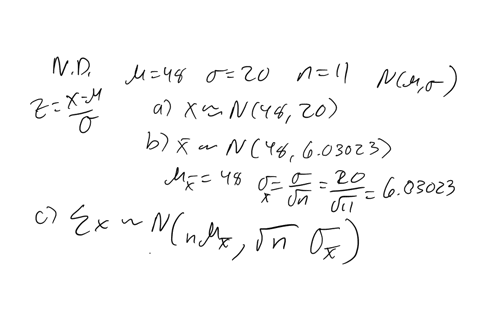 N.D. μ=48 σ=20 n=11 N(μ,σ)
z=(x-μ)/σ a) x~N(48,20)
b) x̄~N(48, 6.03023)
μx̄=48 σx̄=σ/√n=20/√11=6.03023
c) Σx~N(nμx̄, √n σx̄)